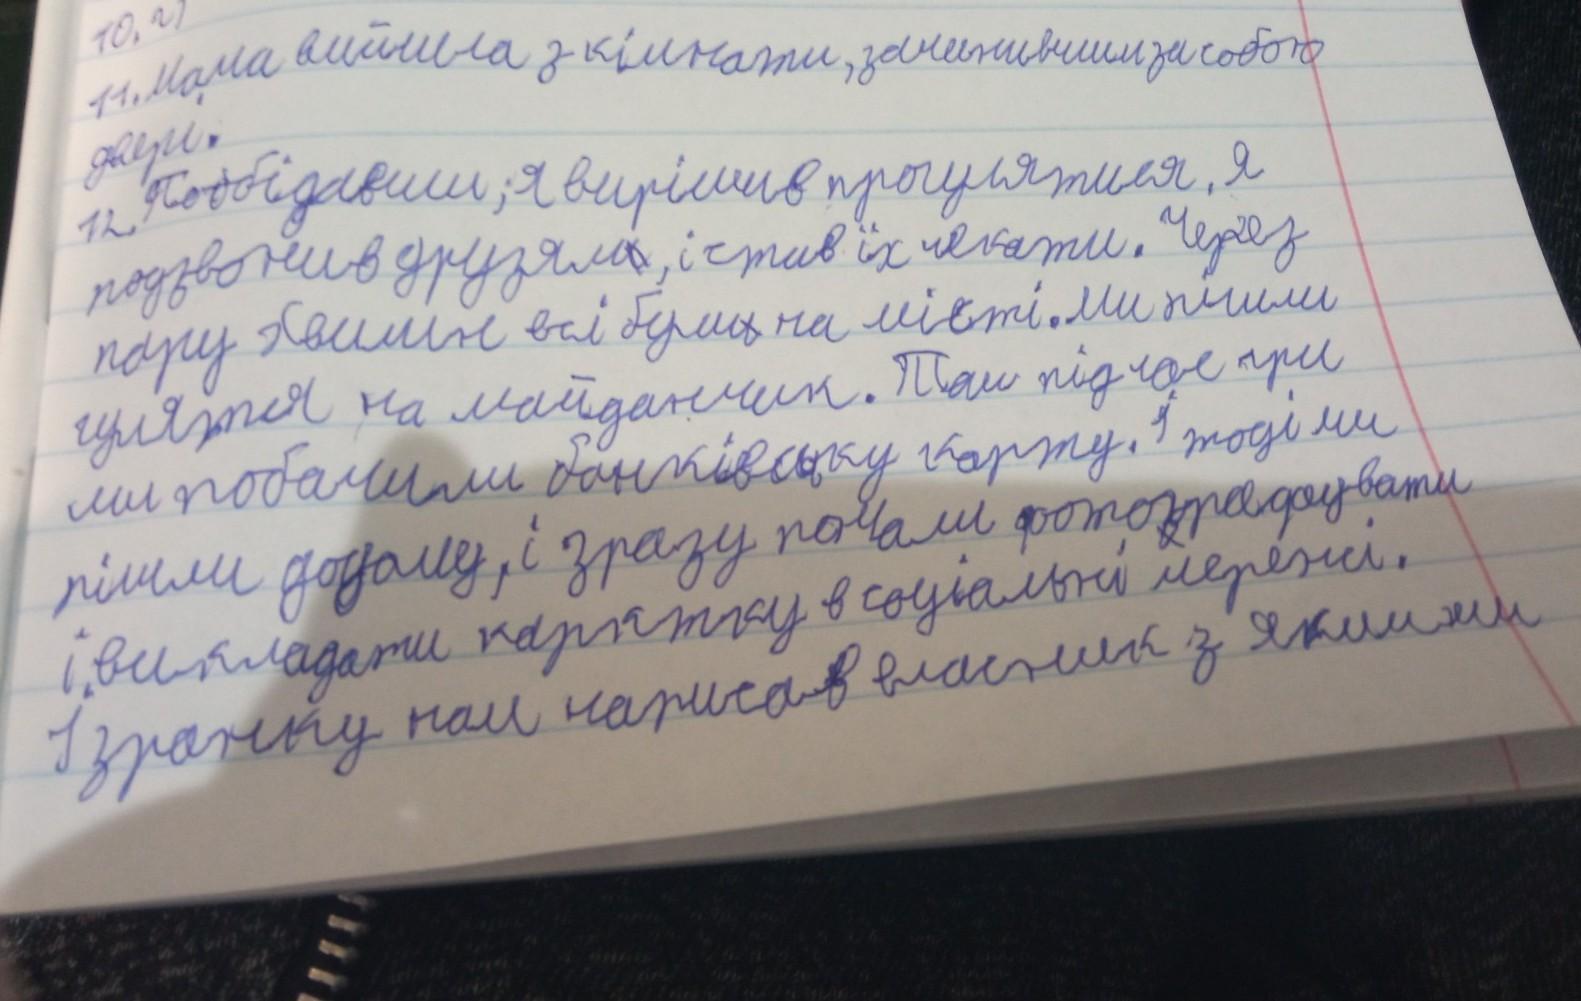 10. г)
11. Мама вийшла з кімнати, зачинивши за собою
двері.
12. Пообідавши, я вирішив прогулятися. Я
подзвонив друзям, і став їх чекати. Через
пару хвилин всі були на місті. Ми пішли
гуляти на майданчик. Там під час гри
ми побачили банківську карту. І тоді ми
пішли додому, і зразу почали фотографувати
і викладати картку в соціальні мережі.
І зранку нам написав власник з якими ми